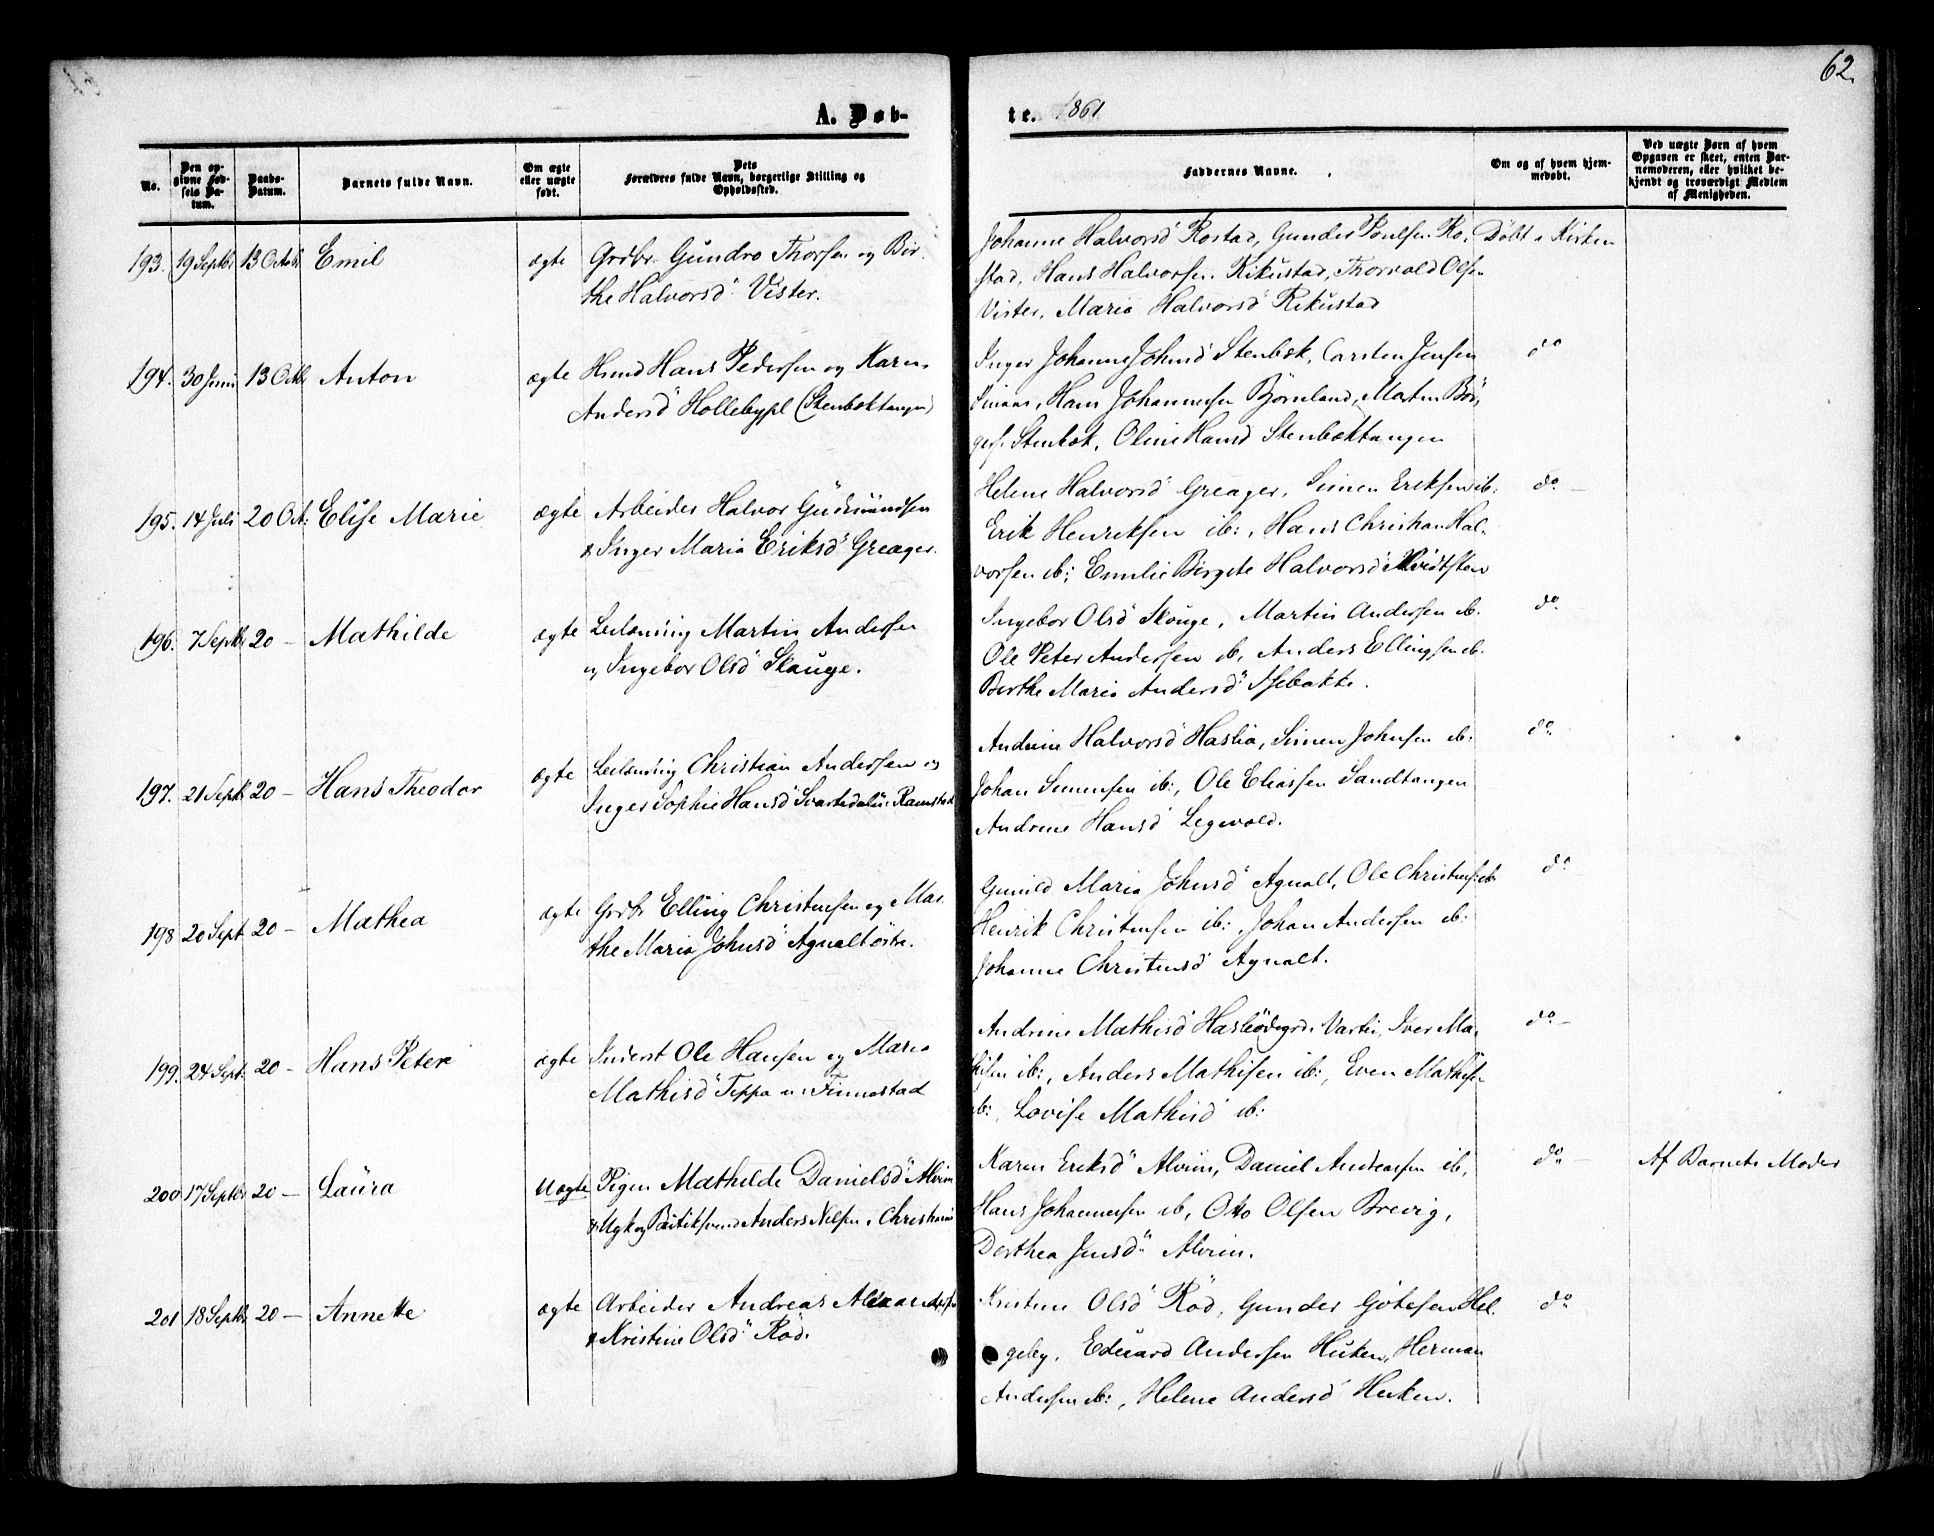 62.
A. Døb-
te. 1861
No.
Den op-
givne Fød-
sels Da-
tum.
Daabs-
Datum.
Barnets fulde Navn.
Om ægte
eller uægte
født.
Dets
Forældres fulde Navn, borgerlige Stilling og
Opholdssted.
Faddernes Navne.
Om og af hvem hjem-
medøbt.
Ved uægte Børn af hvem
Opgaven er skeet, enten Bar-
nemoderen, eller hvilket be-
kjendt og troværdigt Medlem
af Menigheden.
193. 19 Septbr 13 Octbr Emil ægte Grdbr. Gundro Thorsen og Bir-
the Halvorsd: Vister.
Johanne Halvorsd Rostad, Gunder Poulsen Ro-
stad, Hans Halvorsen Rikustad, Thorvald Olsen
Vister, Maria Halvorsd Rikustad
Døbt i Kirken
194. 30 Juni 13 Octbr Anton ægte Hmd Hans Pedersen og Karen
Andersd Hollebypl (Stenboktangen)
Inger Johanne Johnsd Stenbok, Carsten Jensen
Hans Johannesen Bjørnland, Martin Bör-
ges. Stenbok, Oline Hansd Stenboktangen
do
195. 14 Juli 20 Oct: Elise Marie ægte Arbeider Halvor Gudmundsen
& Inger Maria Eriksd Greager.
Helene Halvorsd Greager, Simen Eriksen ib:
Erik Henriksen ib:, Hans Christian Hal-
vorsen ib: Emilie Birgete Halvorsd Hvidtsten
do –
196. 7 Septbr 20 – Mathilde ægte Leilænding Martin Andersen
og Ingebor Olsd Skauge.
Ingebor Olsd Skouge, Martin Andersen ib.
Ole Peter Andersen ib, Anders Ellingsen ib.
Berthe Maria Andersd Isebakke.
do
197. 21 Septbr 20 – Hans Theodor ægte Leilænding Christian Andersen og
Inger Sophie Hansd Svartedalu: Ramstad
Andrine Halvorsd Haslia, Simen Johnsen ib:
Johan Simensen ib:, Ole Eliassen Sandtangen
Andrine Hansd Legvold.
do
198 20 Sept 20 – Mathea ægte Grdbr Elling Christensen og Mar-
the Maria Johnsd Agnalt östre.
Gunild Maria Johnsd Agnalt, Ole Christens: ib
Henrik Christensen ib:, Johan Andersen ib:
Johanne Christensd Agnalt.
do
199. 24 Sept: 20 – Hans Peter ægte Inderst Ole Hansen og Maria
Mathisd Teppa u: Finnestad
Andrine Mathisd Haslieødegrd. Iver Ma-
thisen ib:, Anders Mathisen ib:, Even Mathisen
ib:, Lovise Mathisd ib:
do –
200 17 Septbr 20 – Laura Uægte Pigen Mathilde Danielsd Alvim
& Ugk og Butiksvend Anders Nilsen, Christiania
Karen Eriksd Alvim, Daniel Andreassen ib,
Hans Johannesen ib, Otto Olsen Brevig,
Dorthea Jensd Alvim.
do –
Af Barnets Moder
201 18 Septbr 20 – Annette ægte Arbeider Andreas Alexandersen
& Kristine Olsd Röd.
Kristine Olsd Röd, Gunder Götesen Hel-
geby, Eduard Andersen Huken, Herman
Andersen ib:, Helene Andersd Huken.
do